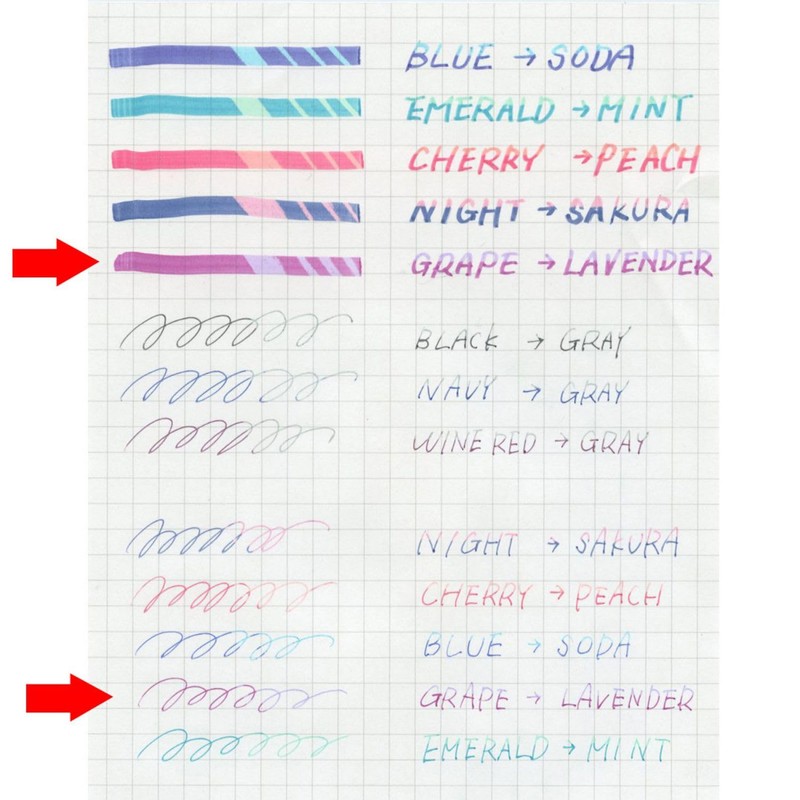 BLUE → SODA
EMERALD → MINT
CHERRY → PEACH
NIGHT → SAKURA
GRAPE → LAVENDER
BLACK → GRAY
NAVY → GRAY
WINE RED → GRAY
NIGHT → SAKURA
CHERRY → PEACH
BLUE → SODA
GRAPE → LAVENDER
EMERALD → MINT